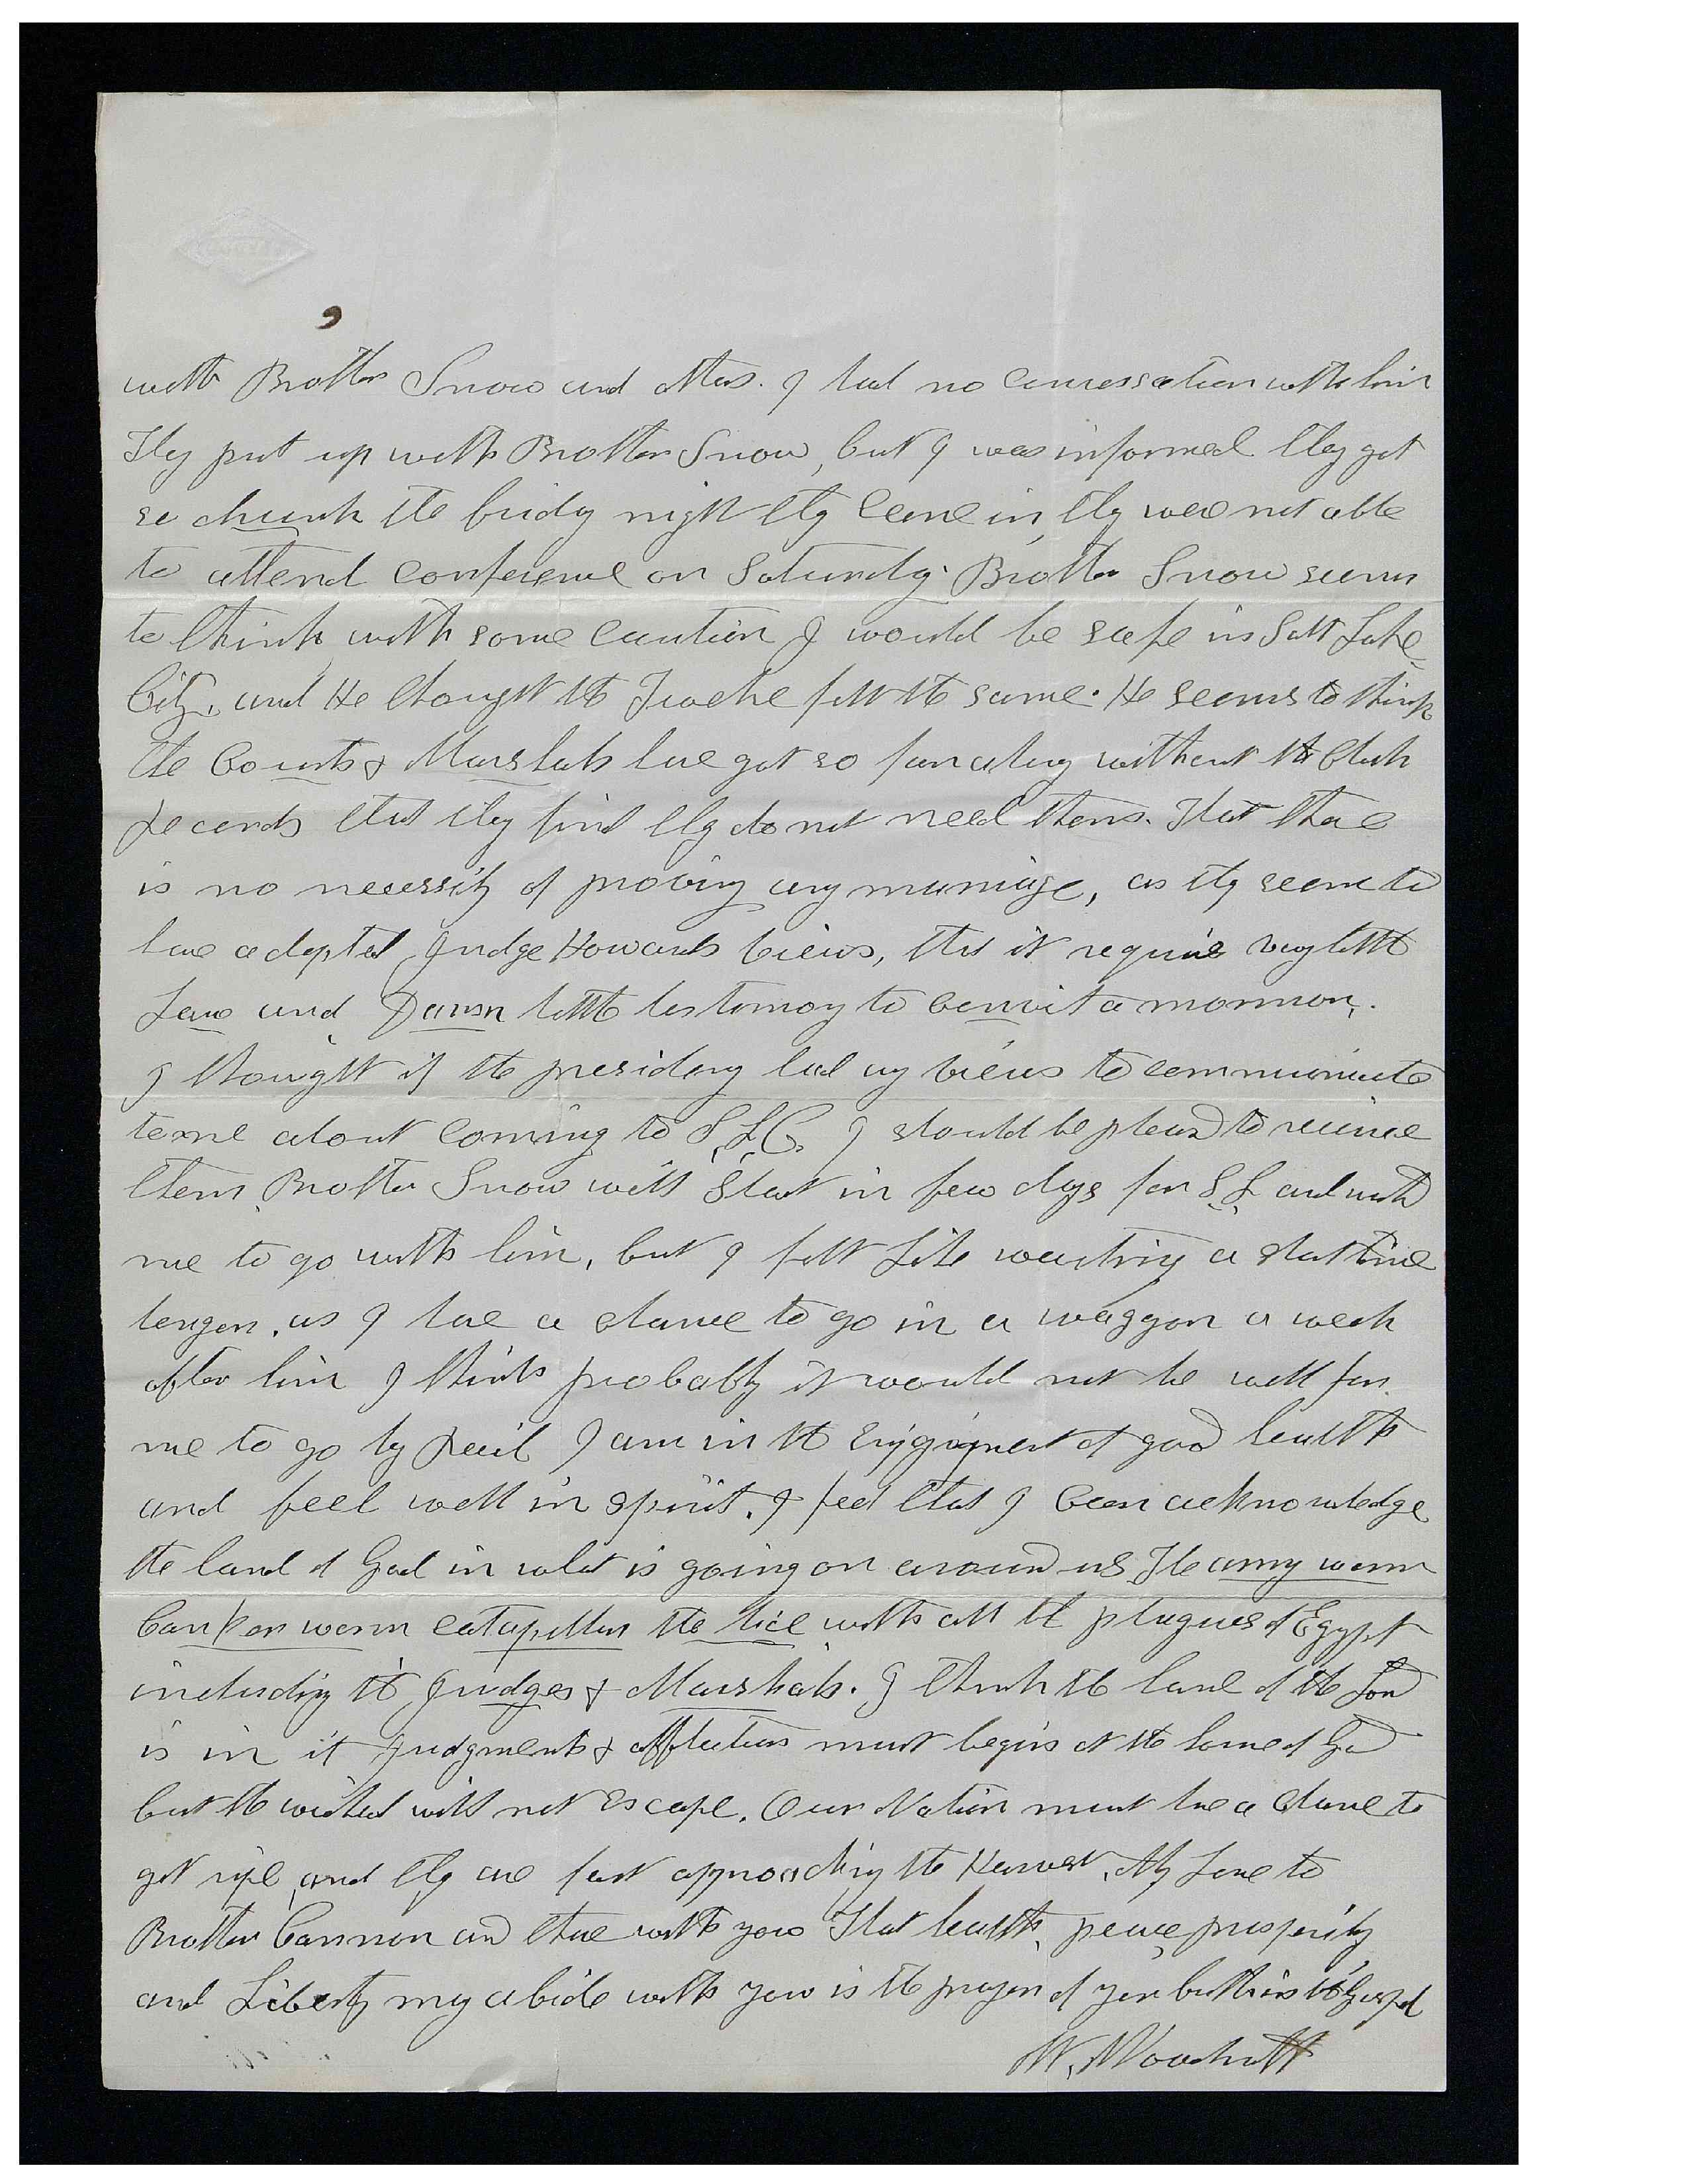 with Brother Snow and others. I had no conversation with him
They put up with Brother Snow, but I was informed they got
so drunk the friday night they Came in, they were not able
to attend Conference on Saturday. Brother Snow seems
to think with some Caution I would be safe in Salt Lake
City. and He thought the Twelve felt the same. He seems to think
the Courts & Marshals have got so far along without the
Records that they find they do not need them. That there
is no necessity of proving any marriage, as they seem to
have adopted Judge Howards views, that it requires very little
Law and Damn little testimony to Convict a mormon.
I thought if the presidency had any views to communicate
to me about Coming to S.L.C. I should be pleased to receive
them. Brother Snow will start in few days for S.L. and
me to go with him, but I felt Like waiting a short time
longer, as I have a chance to go in a waggon a week
after him I think probably it would not be well for
me to go by Rail I am in the Enjoyment of good health
and feel well in spirit. I feel that I Can acknowledge
the hand of God in what is going on around us The army worm
Canker worm catapillar the lice with all the plagues of Egypt
including the Judges & Marshals. I think the hand of the Lord
is in it Judgments & afflictions must begin at the house of God
but the wicked will not Escape. Our Nation must have a chance to
get ripe and they are fast approaching the Harvest. My Love to
Brother Cannon and those with you That health, peace, prosperity
and Liberty may abide with you is the prayer of your brother in the Gospel
W. Woodruff